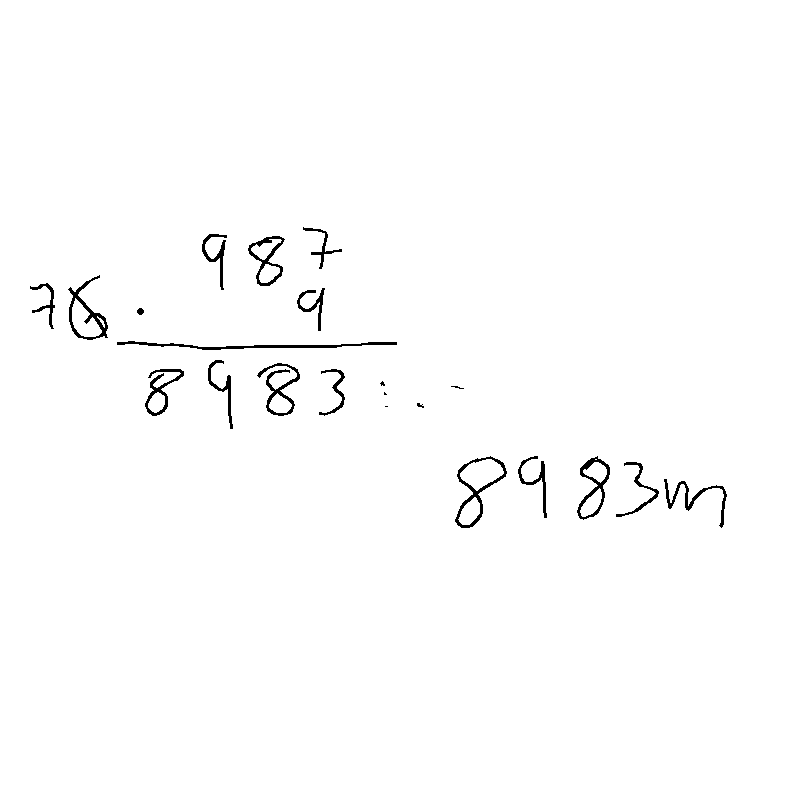 987
76 . 9
8983
8983m